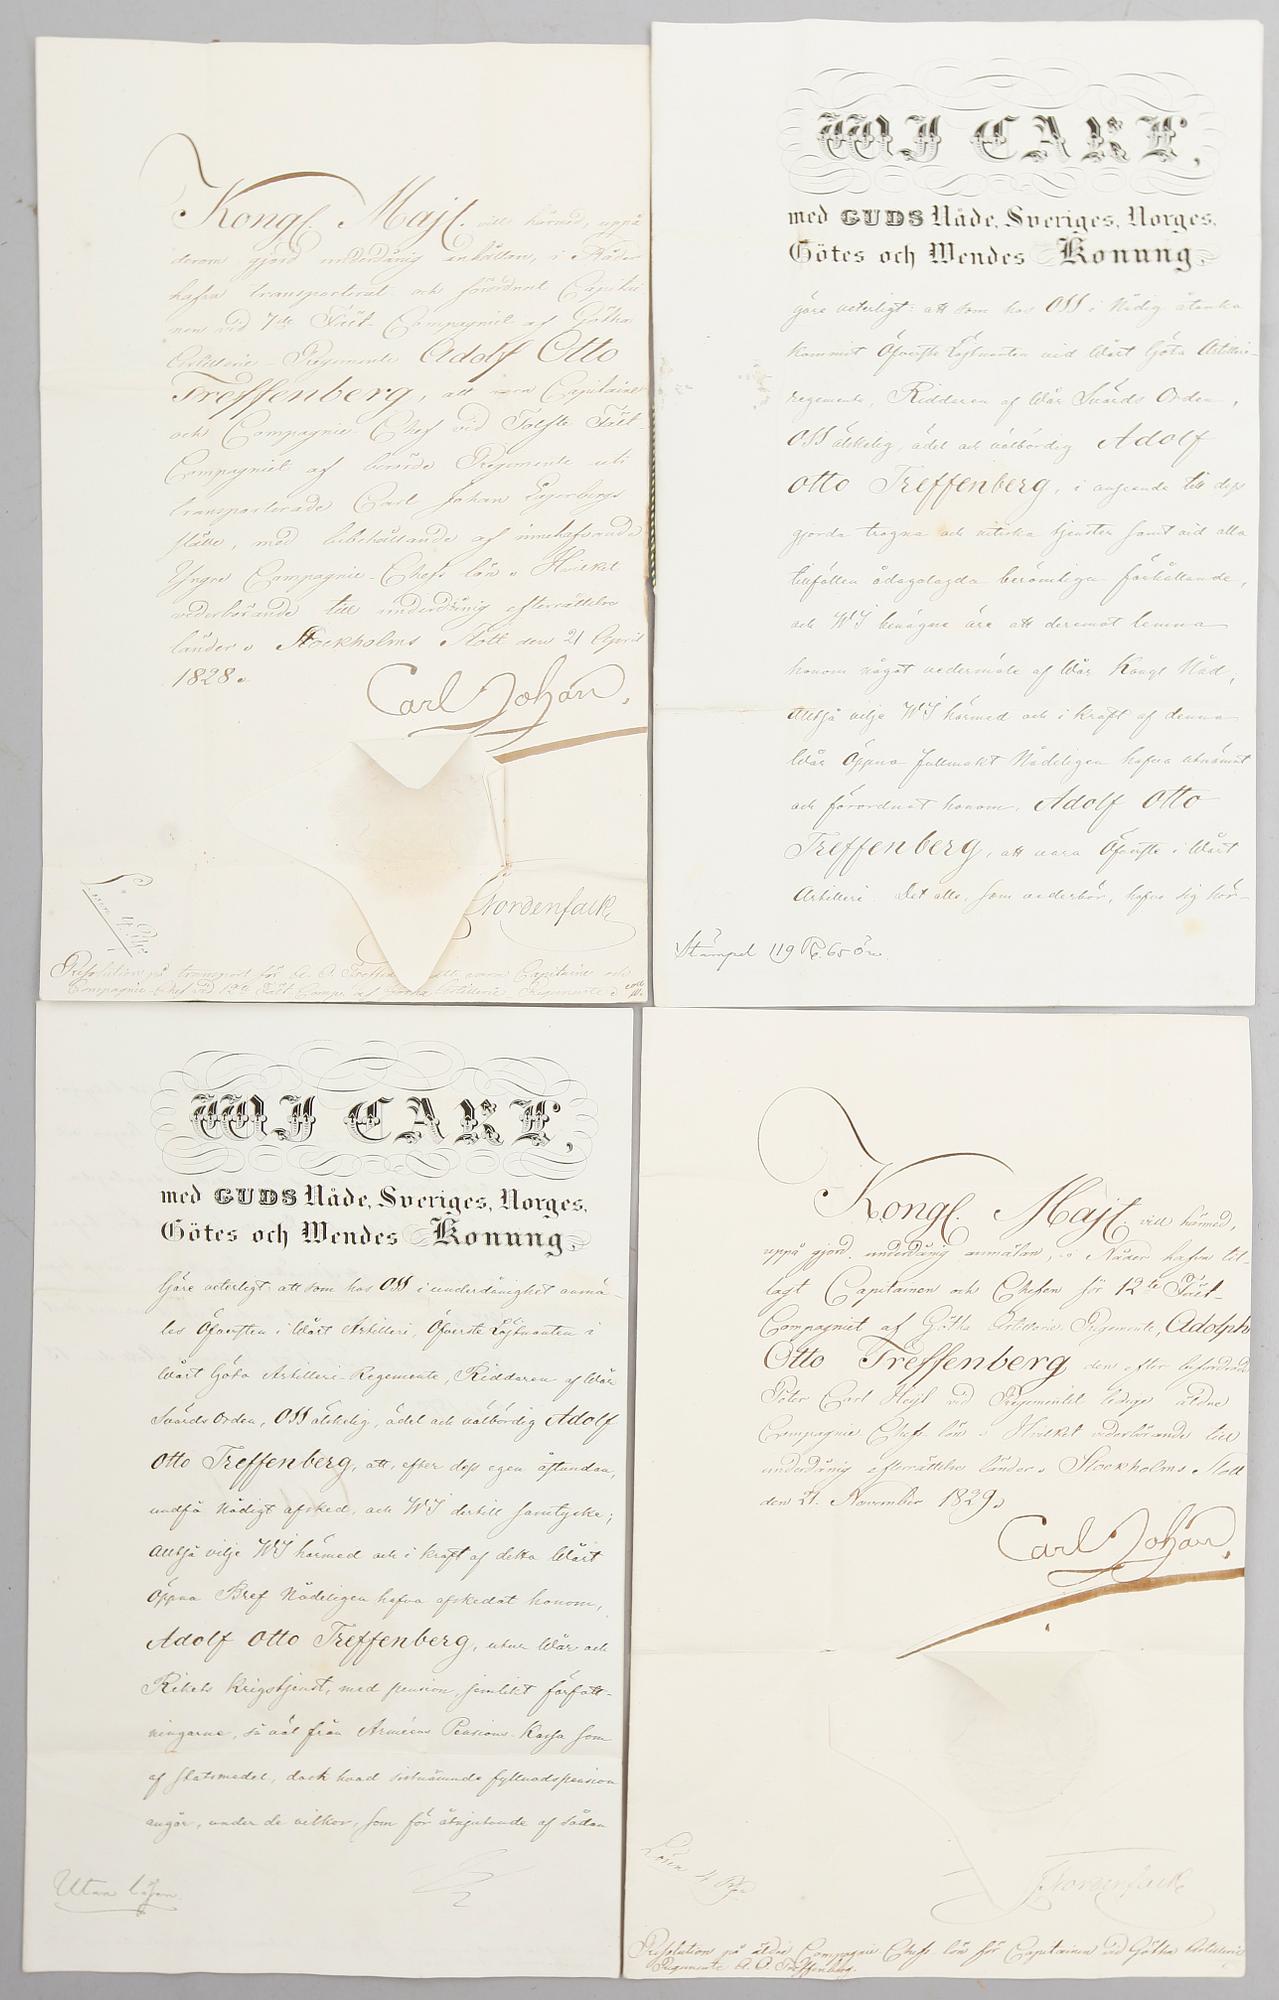 Kongl. Majt. vill härmed, uppå
derom gjord underdånig anhållan, i Nåder
hafva transporterat och förordnat Capitai
nen vid 7de Fält-Compagniet af Götha
Artillerie-Regemente Adolf Otto
Treffenberg, att vara Capitaine
och Compagnie Chef vid Tolfte Fält-
Compagniet af berörde Regemente uti
transporterade Carl Johan
ställe, med bibehållande af innehafvande
Yngre Compagnie-Chefs lön. Hvilket
vederbörande till underdånig efterrättelse
länder. Stockholms Slott den 21 April
1828.
Carl Johan.
Nordenfalk
Lösen 4
Resolution på transport för A. O. att vara Capitaine och
Compagnie-Chef vid 12te Fält Comp. af Götha Artillerie Regemente
WJ CARL,
med GUDS Nåde, Sveriges, Norges,
Götes och Wendes Konung,
göre veterligt: att som hos OSS i Nådig åtanke
kommit Öfverste Löjtnanten vid Wårt Göta Artilleri-
regemente, Riddaren af Wår Svärds Orden,
OSS älskelig, ädel och välbördig Adolf
Otto Treffenberg, i anseende till dess
gjorda trogna och nitiska tjenster samt vid alla
tillfällen ådagalagda berömliga förhållande,
och WJ benägne äre att deremot lemna
honom något vedermäle af Wår Kongl Nåd,
Alltså vilje WJ härmed och i kraft af denna
Wår Öppna fullmakt Nådeligen hafva utnämnt
och förordnat honom, Adolf Otto
Treffenberg, att vara Öfverste i Wårt
Artilleri. Det alle, som vederbör, hafva sig hör-
Stämpel 119 65 öre
WJ CARL,
med GUDS Nåde, Sveriges, Norges,
Götes och Wendes Konung,
Göre veterligt: att som hos OSS i underdånighet anmä-
les Öfversten i Wårt Artilleri, Öfverste Löjtnanten i
Wårt Göta Artilleri-Regemente, Riddaren af Wår
Svärds Orden, OSS älskelig, ädel och välbördig Adolf
Otto Treffenberg, att, efter dess egen åstundan,
undfå Nådigt afsked, och WJ dertill samtycke;
Alltså vilje WJ härmed och i kraft af detta Wårt
Öppna Bref Nådeligen hafva afskedat honom,
Adolf Otto Treffenberg, utur Wår och
Rikets Krigstjenst, med pension, jemlikt författ-
ningarne, så väl från Arméens Pensions-Kassa som
af statsmedel, dock hvad sistnämnde fyllnadspension
angår, under de vilkor, som för åtnjutande af sådan
Utan lösen
Kongl. Majt. vill härmed,
uppå gjord underdånig anmälan, i Nåder hafva til-
lagt Capitainen och Chefen för 12te Fält-
Compagniet af Götha Artillerie Regemente, Adolph
Otto Treffenberg den efter befordrade
Carl vid Regementet ledige äldre
Compagnie Chefs lön. Hvilket vederbörande till
underdånig efterrättelse länder. Stockholms Slott
den 21. November 1829.
Carl Johan.
Nordenfalk
Lösen 4
Resolution på äldre Compagnie Chefs lön för Capitainen vid Götha Artillerie
Regemente A. O. Treffenberg.